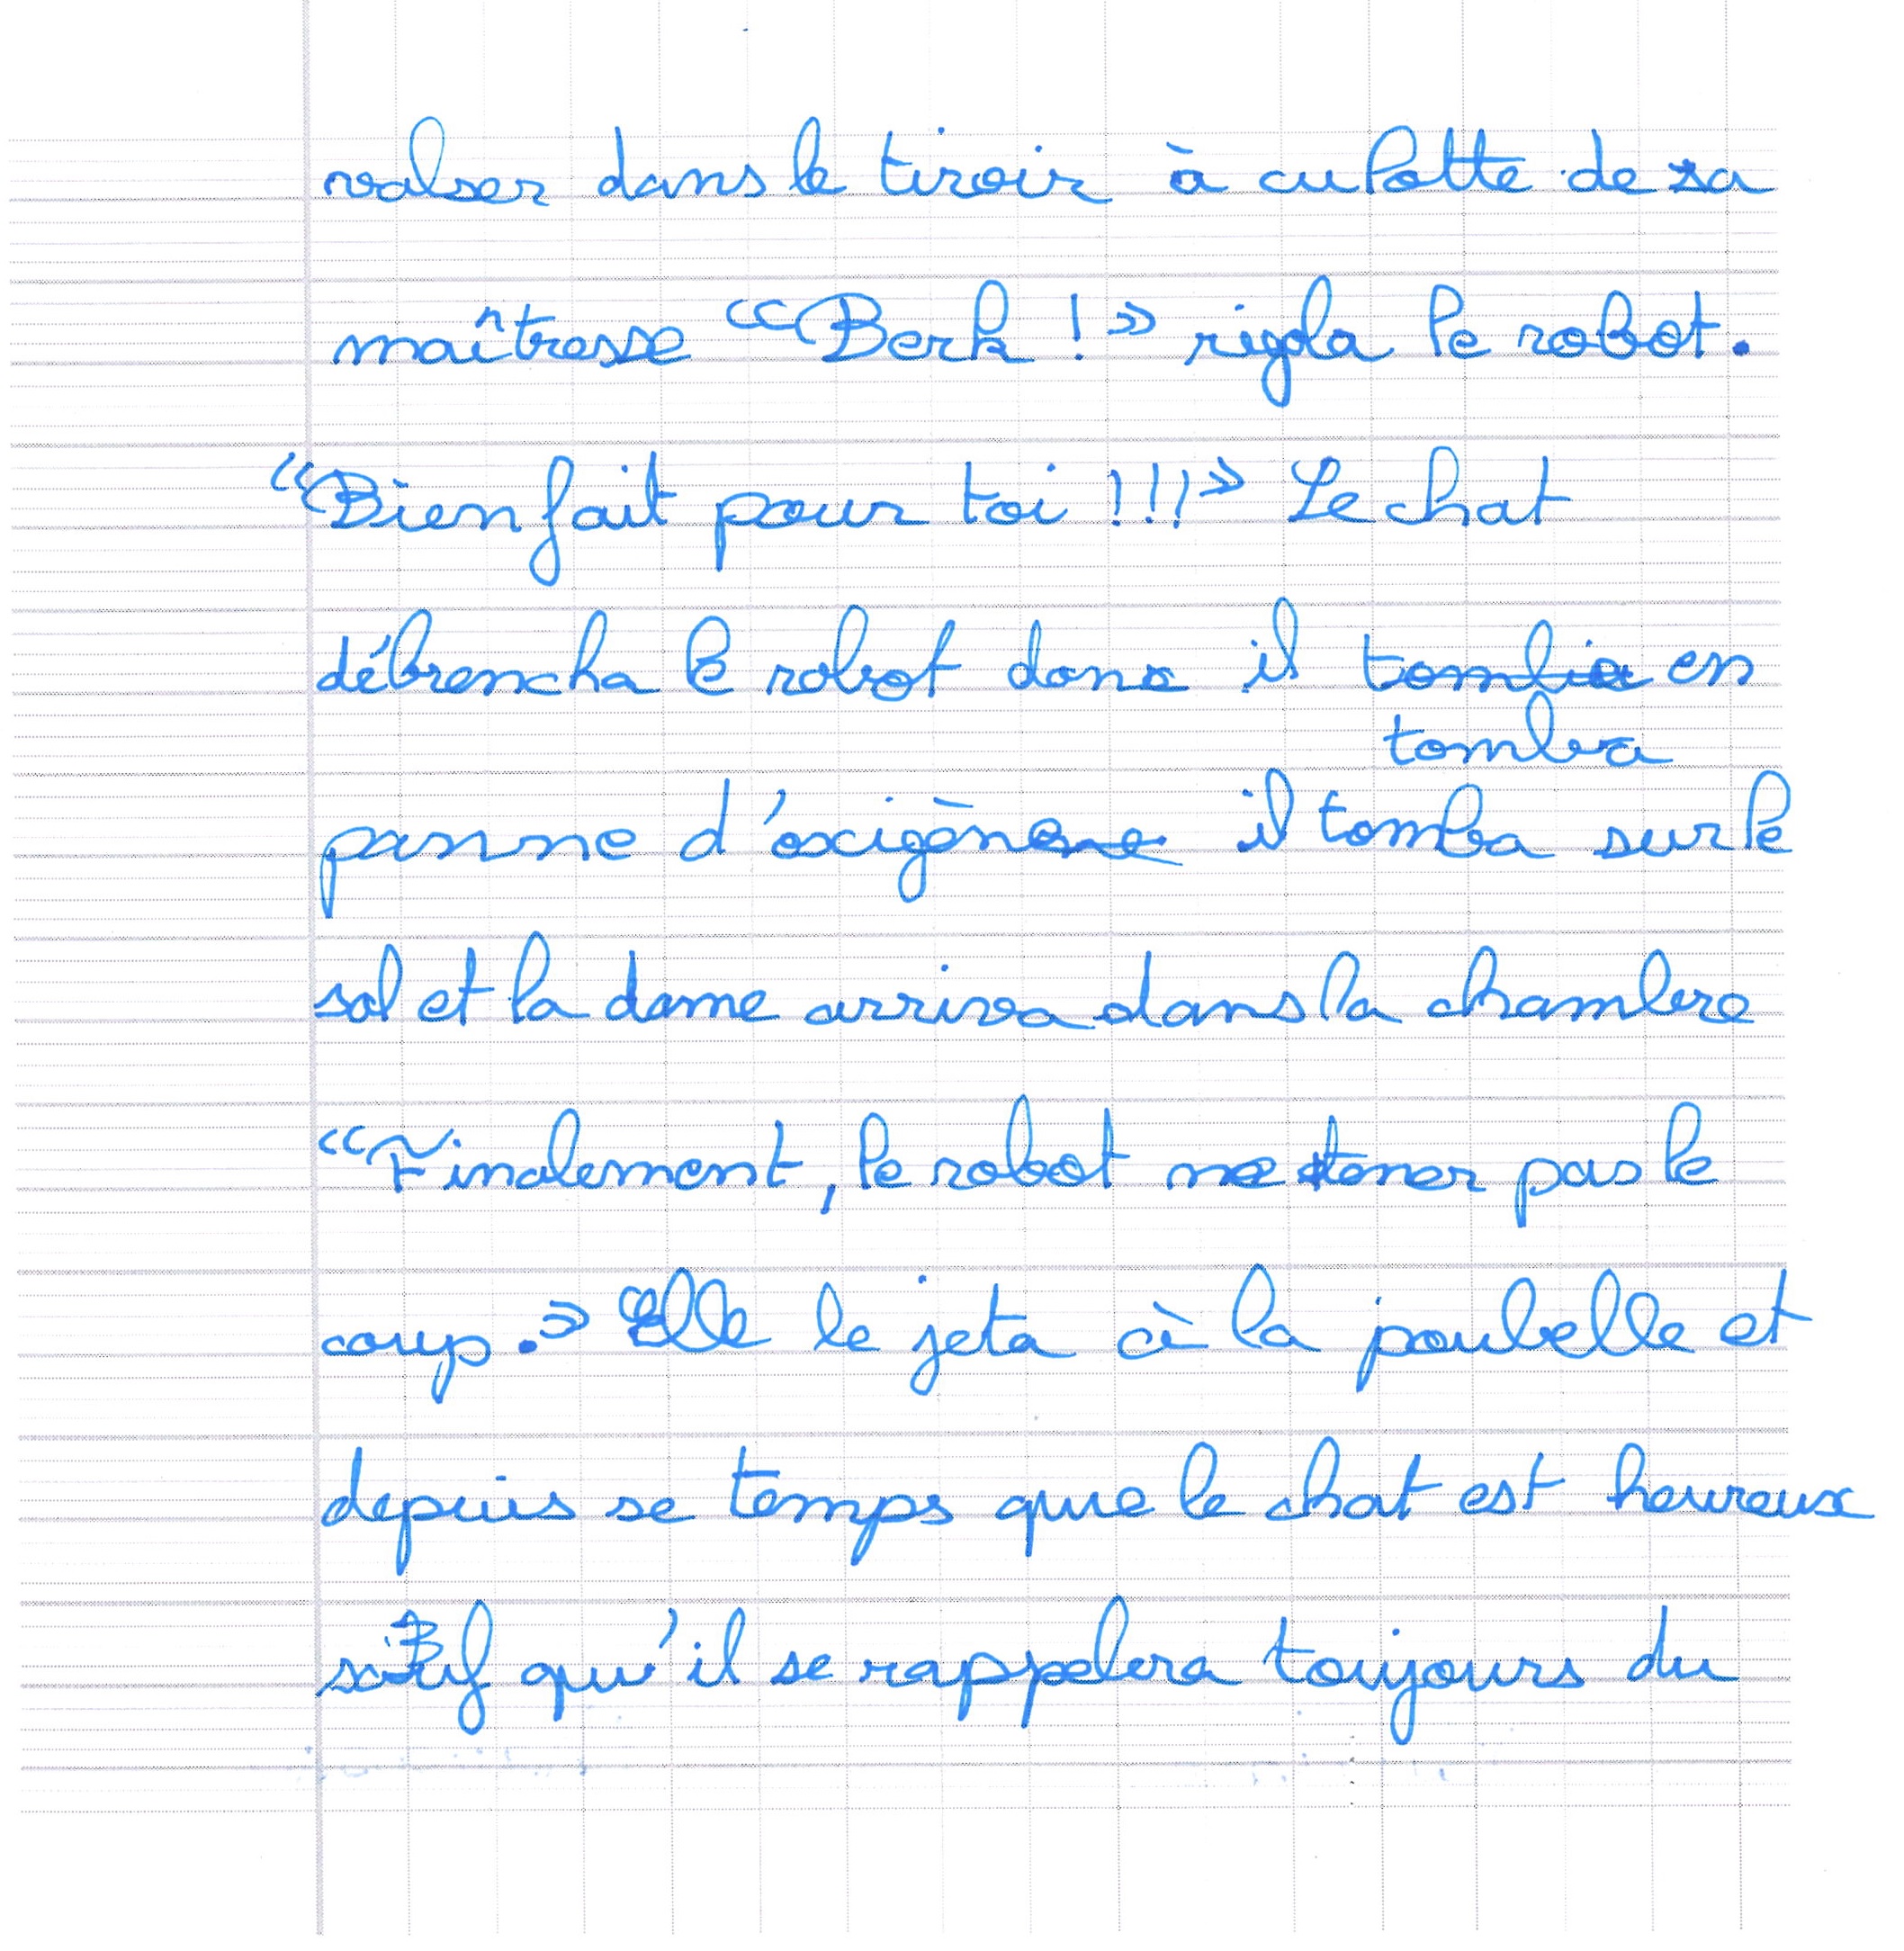 valser dans le tiroir à culotte de sa
maîtresse "Berk !" rigola le robot.
"Bien fait pour toi !!!" Le chat
débrencha le robot donc il ~~tombia~~ en
tomba
panne d'oxigène il tomba sur le
sol et la dame arriva dans la chambre
"Finalement, le robot ne tener pas le
coup." Elle le jeta à la poubelle et
depuis se temps que le chat est heureux
qu'il se rappelera toujours du